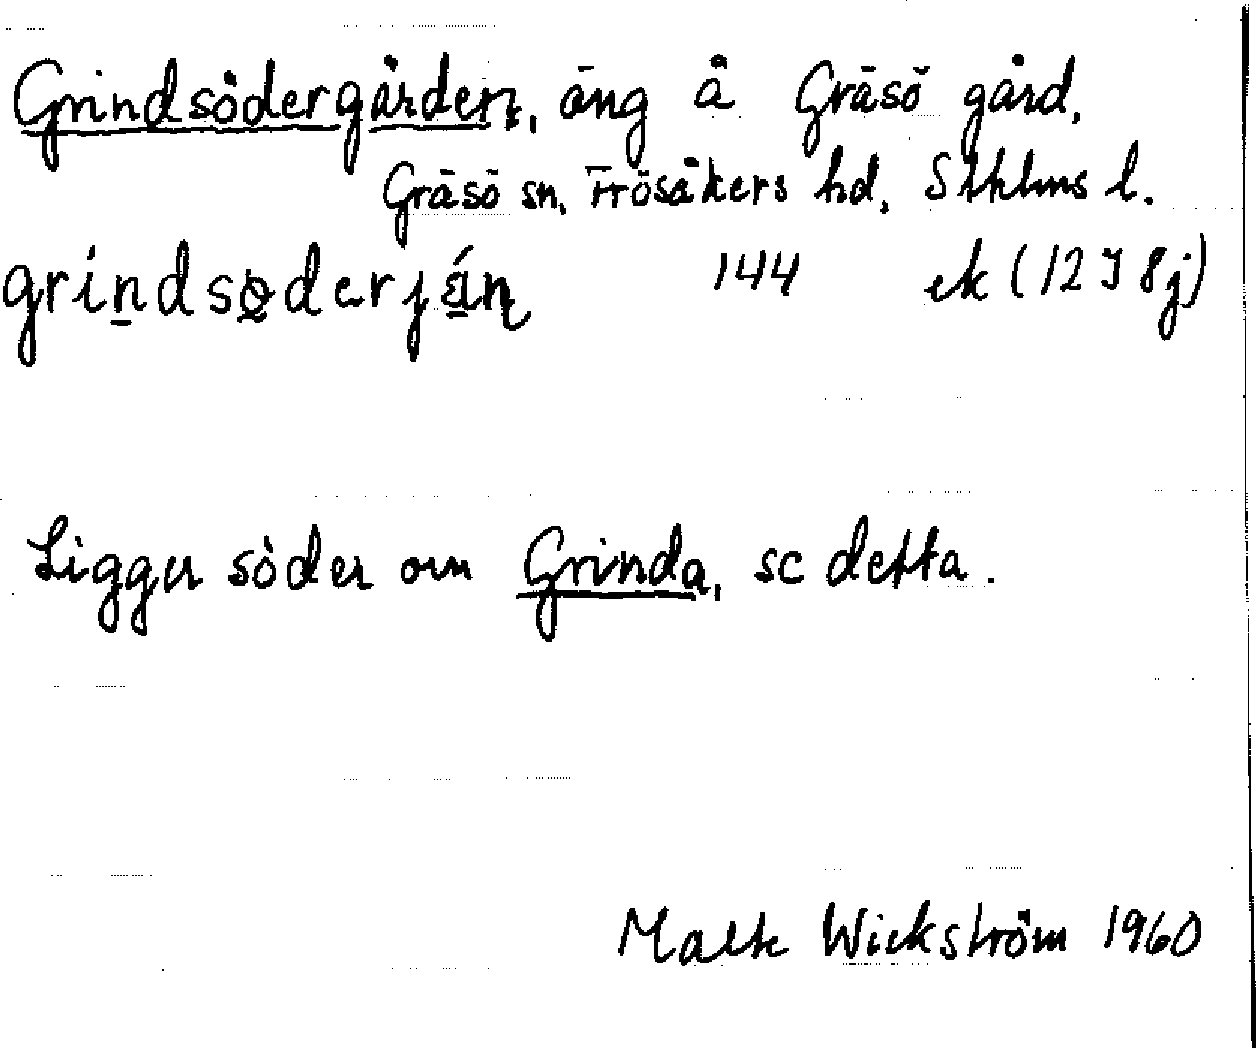 Grindsödergården, äng å Gräsö gård,
Gräsö sn, Frösåkers hd, Sthlms l.
144 ek (12 I 8j)
Ligger söder om Grinda, se detta.
Malte Wickström 1960